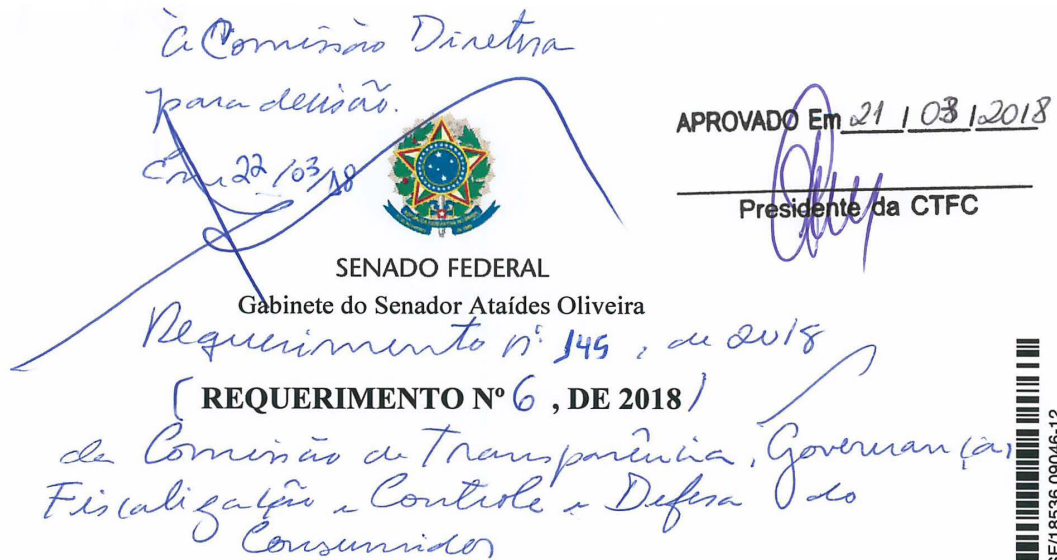 À Comissão Diretora
para decisão.
Em 22/03/18
APROVADO Em 21 / 03 / 2018
Presidente da CTFC
SENADO FEDERAL
Gabinete do Senador Ataídes Oliveira
Requerimento nº 149, de 2018
( REQUERIMENTO Nº 6 , DE 2018 )
da Comissão de Transparência, Governança,
Fiscalização e Controle e Defesa do
Consumidor
SF/18536.09046-12